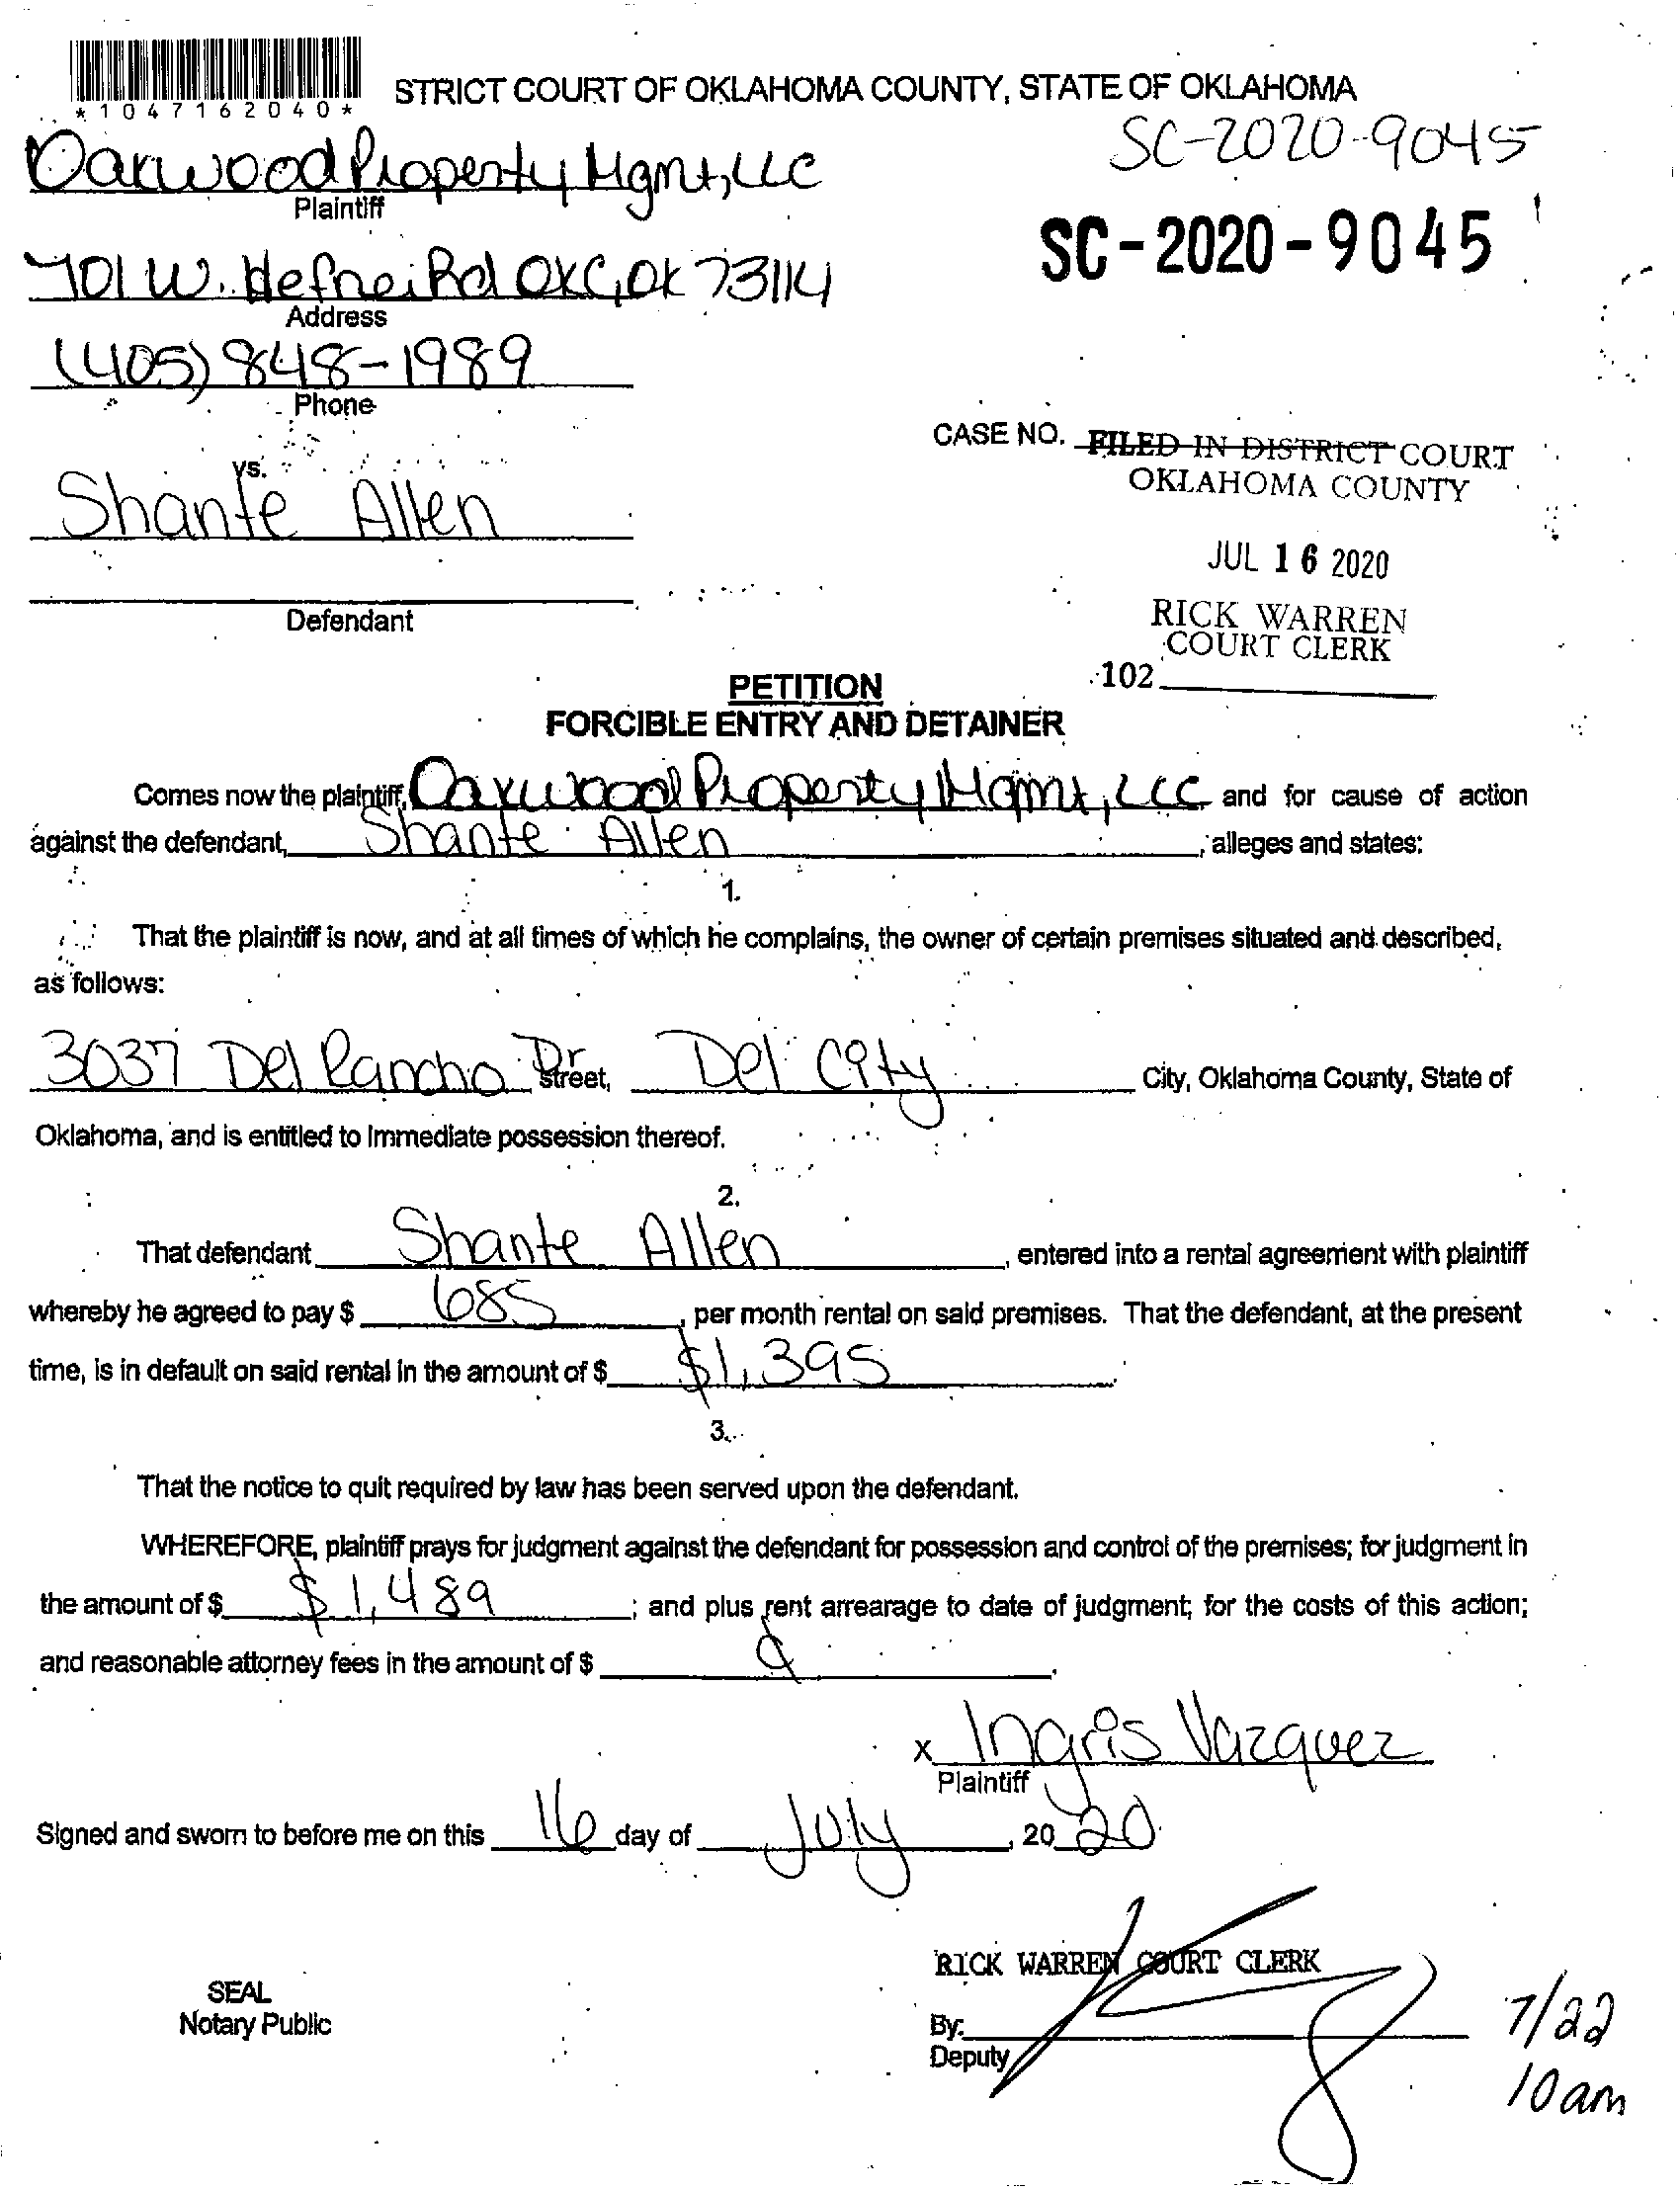 *1047162040*
STRICT COURT OF OKLAHOMA COUNTY, STATE OF OKLAHOMA
SC-2020-9045
Oakwood Property Mgmt, LLC
Plaintiff
SC-2020-9045
701 W. Hefner Rd OKC, OK 73114
Address
(405) 848-1989
Phone
CASE NO. FILED IN DISTRICT COURT
OKLAHOMA COUNTY
vs.
Shante Allen
JUL 16 2020
Defendant
RICK WARREN
COURT CLERK
102
PETITION
FORCIBLE ENTRY AND DETAINER
Comes now the plaintiff, Oakwood Property Mgmt, LLC and for cause of action
against the defendant, Shante Allen, alleges and states:
1.
That the plaintiff is now, and at all times of which he complains, the owner of certain premises situated and described,
as follows:
3037 Del Rancho Dr Street, Del City City, Oklahoma County, State of
Oklahoma, and is entitled to immediate possession thereof.
2.
That defendant Shante Allen, entered into a rental agreement with plaintiff
whereby he agreed to pay $ 685, per month rental on said premises. That the defendant, at the present
time, is in default on said rental in the amount of $ $1,395.
3.
That the notice to quit required by law has been served upon the defendant.
WHEREFORE, plaintiff prays for judgment against the defendant for possession and control of the premises; for judgment in
the amount of $ $1,489; and plus rent arrearage to date of judgment; for the costs of this action;
and reasonable attorney fees in the amount of $ .
x Ingris Vazquez
Plaintiff
Signed and sworn to before me on this 16 day of July, 2020
RICK WARREN COURT CLERK
SEAL
Notary Public
By:
Deputy
7/22
10am